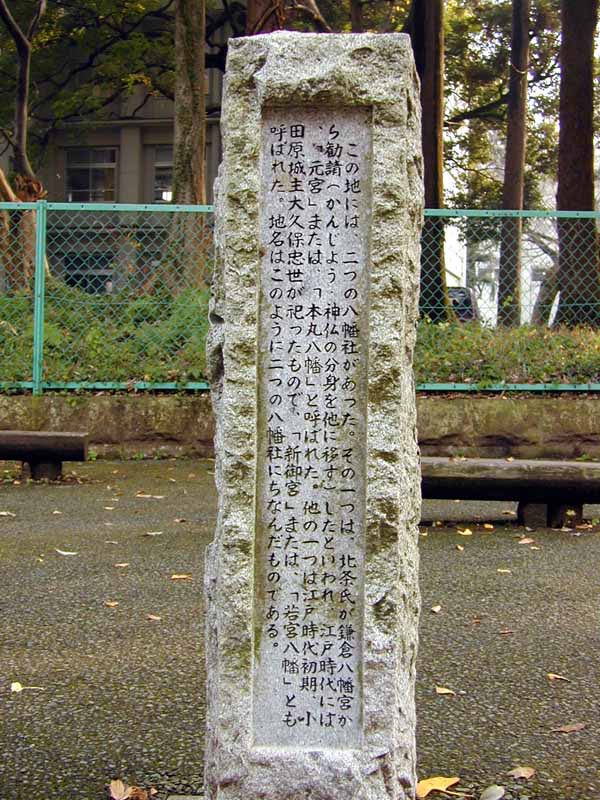 この地には、二つの八幡社があった。その一つは、北条氏が鎌倉八幡宮か
ら勧請(かんじょう 神仏の分身を他に移す)したといわれ、江戸時代には
、「元宮」または、「本丸八幡」と呼ばれた。他の一つは江戸時代初期、小
田原城主大久保忠世が祀ったもので、「新御宮」または、「若宮八幡」とも
呼ばれた。地名はこのように二つの八幡社にちなんだものである。